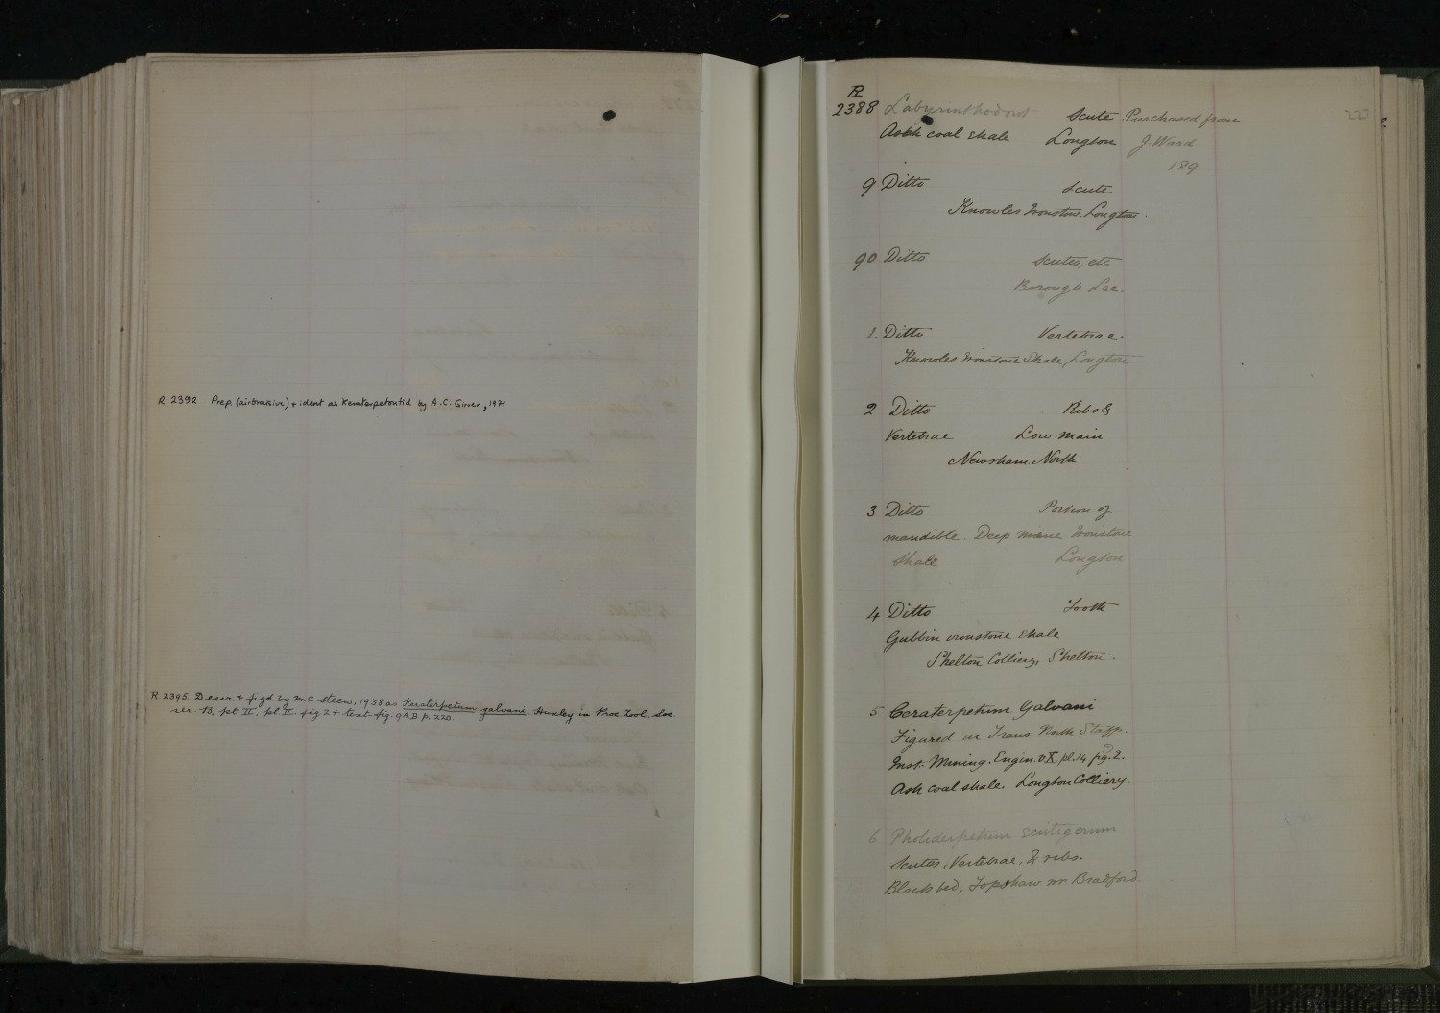 R 2392 Prep. (airbrasive) & ident as Keraterpetontid by A.C.
R 2395. Descr. & figd by M.C. Steen, 1938 as Keraterpetum galvani Huxley in Proc Zool. Soc
ser. B, pt II, pl II. fig 2 + text-fig. 9A,B p. 220.
R
2388 Labyrinthodont Scute Purchased from
Ash coal shale Longton J. Ward
189
9 Ditto Scute
Knowles Ironstone. Longton.
90 Ditto Scutes, etc
Borough Lee.
1. Ditto Vertebrae.
Knowles Ironstone Shale, Longton
2 Ditto Ribs &
Vertebrae Low main
Newsham. North
3 Ditto Portion of
mandible. Deep mine Ironstone
Shale Longton
4 Ditto Tooth
Gubbin ironstone shale
Shelton Colliery, Shelton.
5 Ceraterpetum Galvani
Figured in Trans North Staff.
Inst. Mining. Engin. v X, pl. 14 fig. 2.
Ash coal shale. Longton Colliery.
6 Pholiderpetum scutigerum
Scutes, Vertebrae, & ribs.
Black bed, Topshaw nr Bradford.